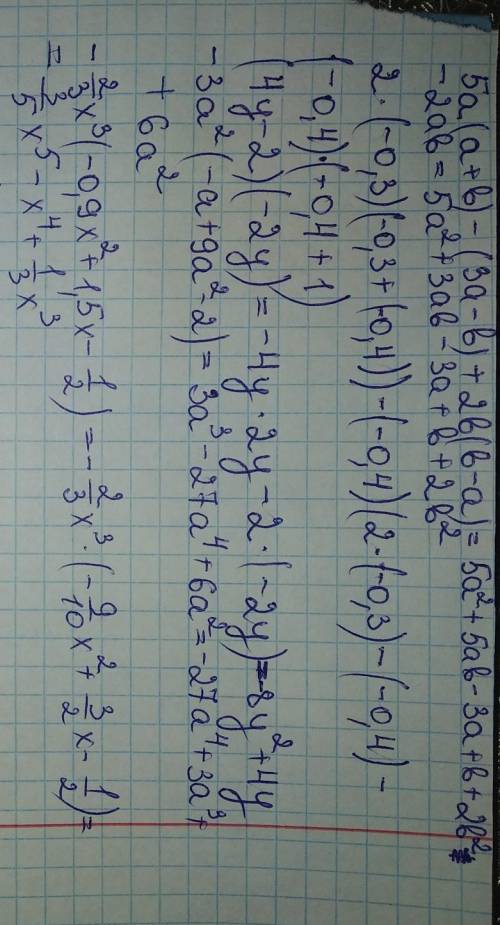 5a(a+b)-(3a-b)+2b(b-a)=5a²+5ab-3a+b+2b²-
-2ab=5a²+3ab-3a+b+2b²
2·(-0,3)(-0,3+(-0,4))-(-0,4)(2·(-0,3)-(-0,4)-
(-0,4)·(-0,4+1)
(4y-2)(-2y)=-4y·2y-2·(-2y)=-8y²+4y
-3a²(-a+9a²-2)=3a³-27a⁴+6a²=-27a⁴+3a³+
+6a²
-2/3x³(-0,9x²+1,5x-1/2)=-2/3x³·(-9/10x²+3/2x-1/2)=
=3/5x⁵-x⁴+1/3x³